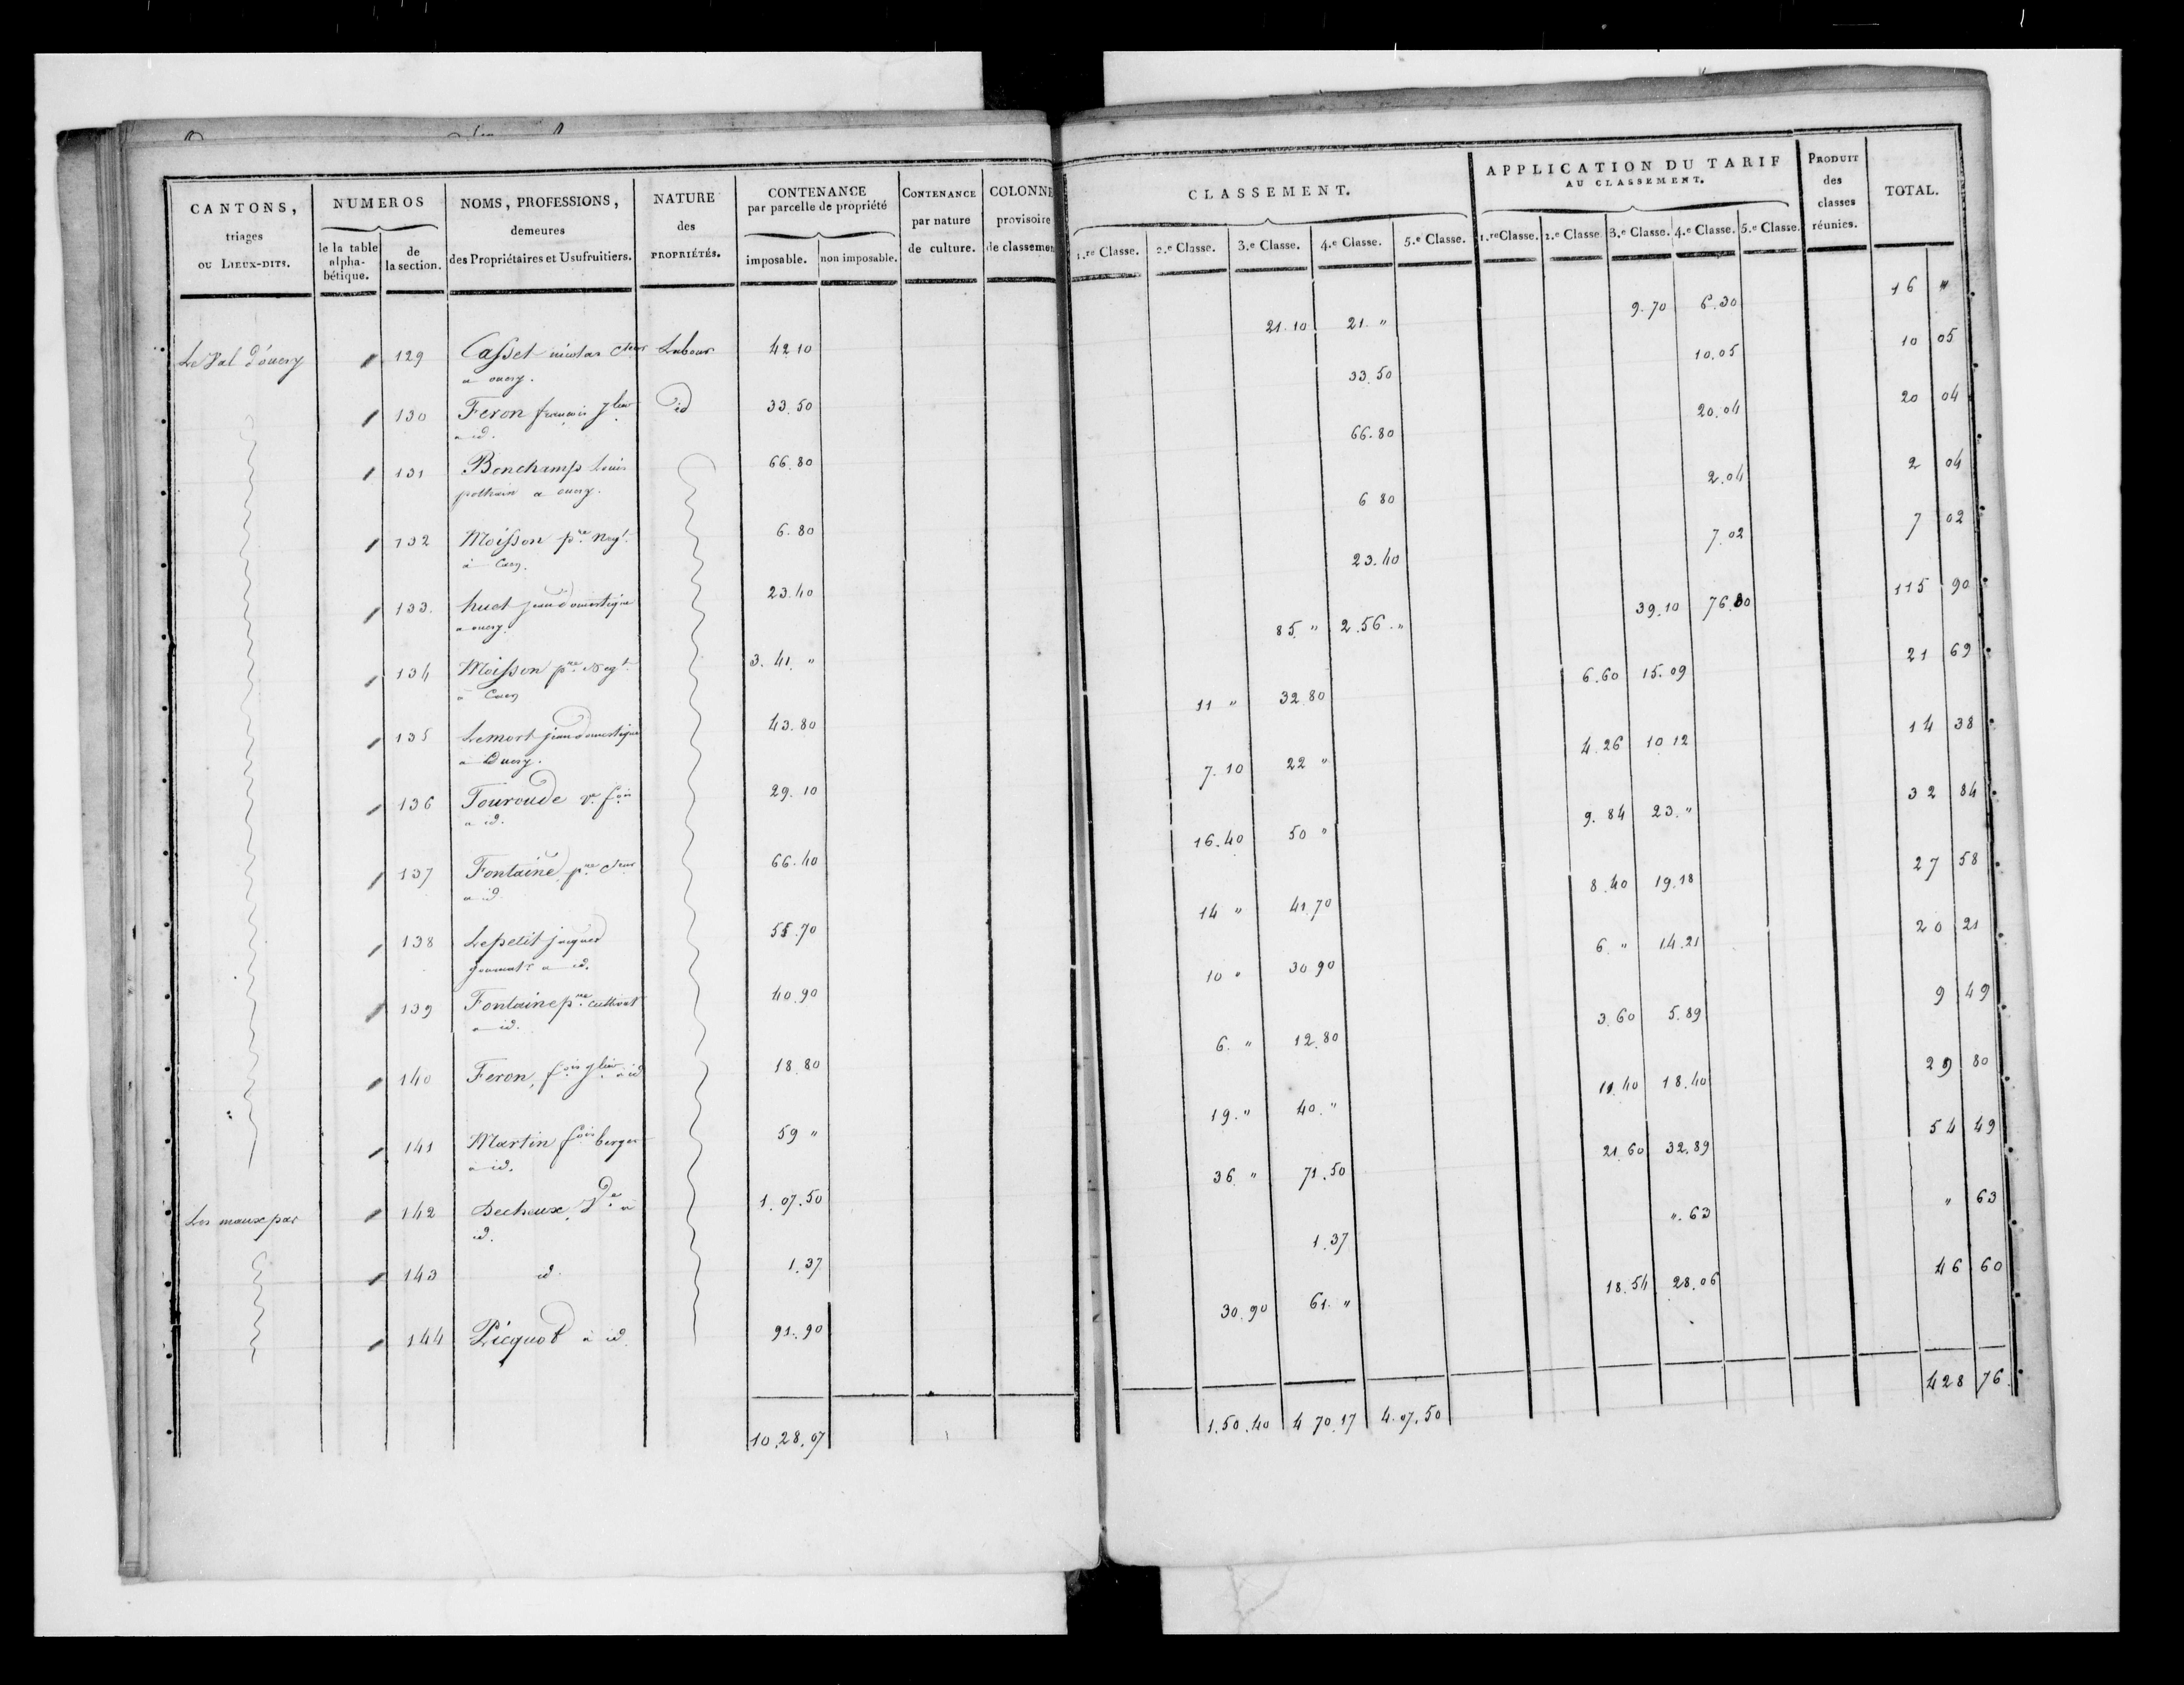 CANTONS,
triages
ou LIEUX-DITS.
NUMEROS
de la table
alpha-
bétique.
de
la section.
NOMS, PROFESSIONS,
demeures
des Propriétaires et Usufruitiers.
NATURE
des
PROPRIÉTÉS.
CONTENANCE
par parcelle de propriété
imposable. non imposable.
CONTENANCE
par nature
de culture.
COLONNE
provisoire
de classemen
CLASSEMENT.
1.re Classe. 2.e Classe. 3.e Classe. 4.e Classe. 5.e Classe.
APPLICATION DU TARIF
AU CLASSEMENT.
1.re Classe. 2.e Classe. 3.e Classe. 4.e Classe. 5.e Classe.
PRODUIT
des
classes
réunies.
TOTAL.
Le Val d'ouery 129 Casset nicolas cteur Labour 42 10 21.10 21. " 9.70 6.30 16 "
a ouery.
130 Feron françois id 33.50 33.50 10.05 10 05
a id.
131 Benchamp Louis 66.80 66.80 20.04 20 04
a ouery.
132 Moisson pre Negt. 6.80 6 80 2.04 2 04
à Caen.
133. huet jean domestique 23.40 23.40 7.02 7 02
a ouery.
134 Moisson pre Negt. 3.41. " 85. " 2.56. " 39.10 76.80 115 90
à Caen
135 Lemort jean domestique 43.80 11 " 32.80 6.60 15.09 21 69
a Ouery.
136 Touroude ve fois 29.10 7.10 22 " 4.26 10 12 14 38
a id.
137 Fontaine pre cteur 66.40 16.40 50 " 9.84 23. " 32 84
a id.
138 Lepetit jacques 55.70 14 " 41.70 8.40 19.18 27 58
journalr a id.
139 Fontaine pre cultivat 40.90 10 " 30 90 6. " 14.21 20 21
a id.
140 Feron, fois a id 18.80 6. " 12.80 3.60 5.89 9 49
141 Martin fois berger 59 " 19. " 40. " 11.40 18.40 29 80
à id.
Les maux par 142 Decheux, Ve à 1.07.50 36. " 71.50 21.60 32.89 54 49
id.
143 id. 1.37 1.37 ". 63 " 63
144 Picquot à id. 91.90 30.90 61. " 18.54 28.06 46 60
10.28.07 1.50.40 4 70.17 4.07.50 428 76.